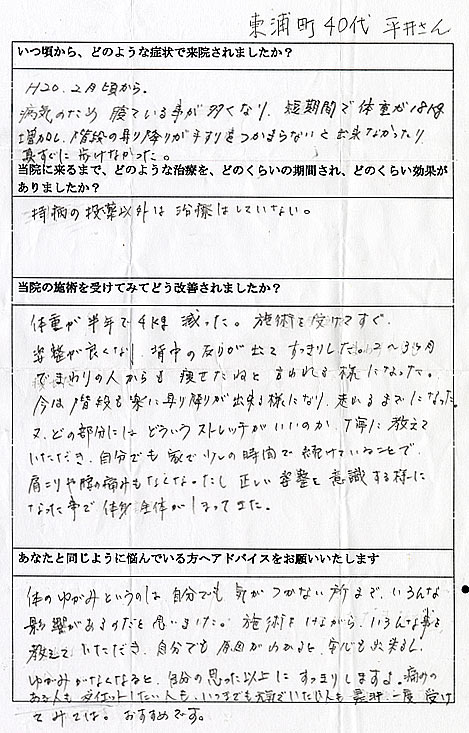 東浦町 40代 平井さん
いつ頃から、どのような症状で来院されましたか？
H20.2月頃から。
病気のため 寝ている事が多くなり、短期間で体重が18kg
増加し、階段の昇り降りが手すりをつかまらないと出来なかったり
真すぐに歩けなかった。
当院に来るまで、どのような治療を、どのくらいの期間され、どのくらい効果が
ありましたか？
持病の投薬以外は治療はしていない。
当院の施術を受けてみてどう改善されましたか？
体重が半年で4kg減った。施術を受けてすぐ、
姿勢が良くなり、背中の反りが出て すっきりした。2〜3ヶ月
でまわりの人からも 痩せたねと言われる様になった。
今は階段も楽に昇り降りが出来る様になり、走れるまでになった。
又、どの部分には どういうストレッチがいいのか、丁寧に教えて
いただき、自分でも家で少しの時間で続けていることで、
肩こりや腰の痛みもなくなったし 正しい姿勢を意識する様に
なった事で 体全体がしまってきた。
あなたと同じように悩んでいる方へアドバイスをお願いいたします
体のゆがみというのは 自分でも気がつかない所まで、いろんな
影響があるのだと思いました。施術を受けながら、いろんな事を
教えていただき、自分でも原因がわかると、安心も出来るし、
ゆがみがなくなると、自分の思った以上に すっきりしますよ。痛みの
ある人も ダイエットしたい人も、いつまでも元気でいたい人も 是非一度 受け
てみては。おすすめです。